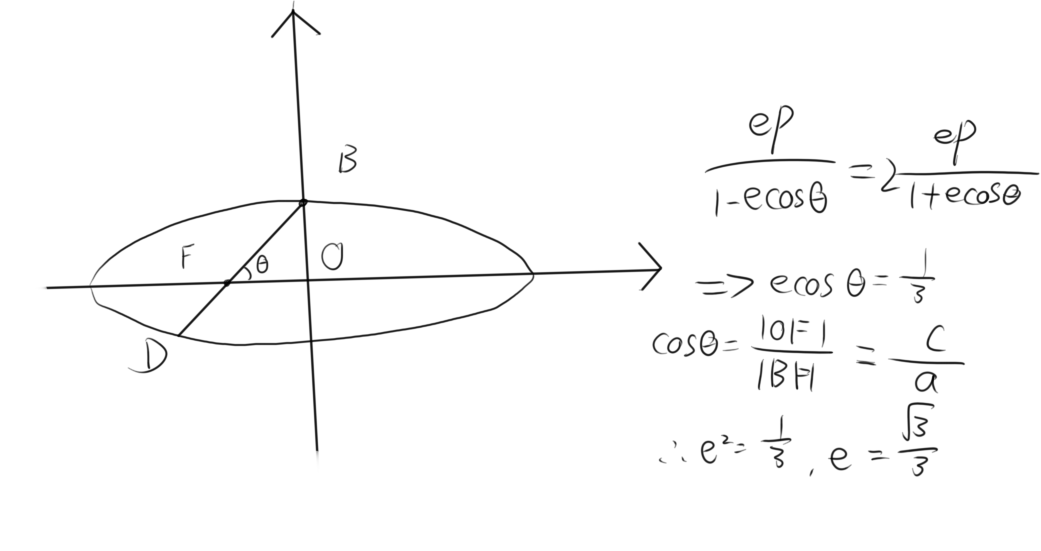 B
F θ O
D
ep/(1-ecosθ) = 2 ep/(1+ecosθ)
=> ecosθ = 1/3
cosθ = |OF|/|BF| = c/a
∴ e² = 1/3, e = √3/3